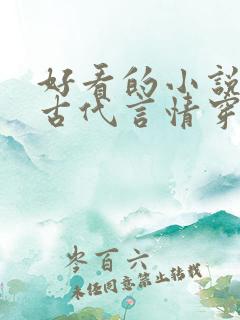 好看的小说
古代言情穿
岑百六
未经同意禁止转载